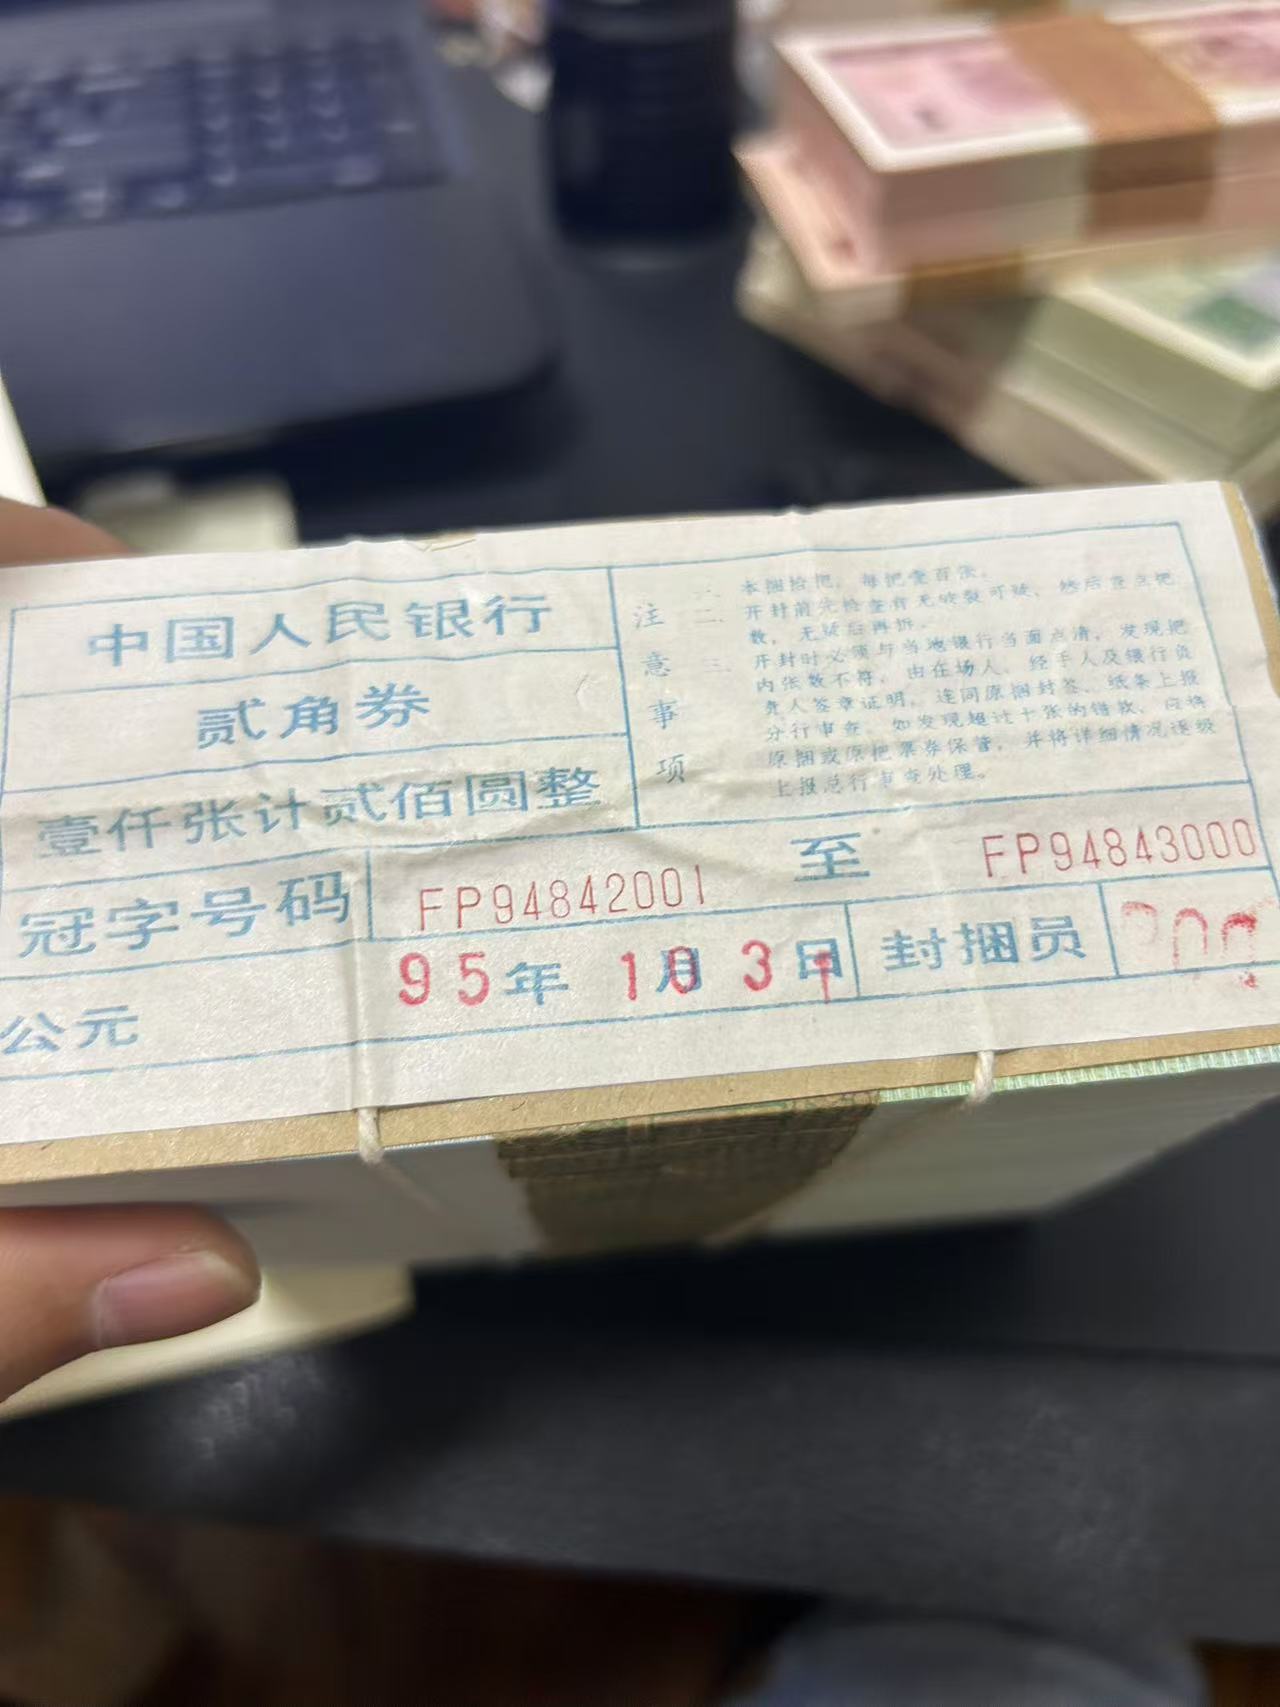 中国人民银行
贰角券
壹仟张计贰佰圆整
注意事项
一 本捆拾把，每把壹百张。
二 开封前先检查有无破裂可疑，然后查点把
数，无疑后再拆。
三 开封时必须与当地银行当面点清，发现把
内张数不符，由在场人、经手人及银行负
责人签章证明，连同原捆封签、纸条上报
分行审查，如发现超过十张的错款，应将
原捆或原把票券保管，并将详细情况逐级
上报总行审查处理。
冠字号码 FP94842001 至 FP94843000
公元 95年 10月 31日 封捆员